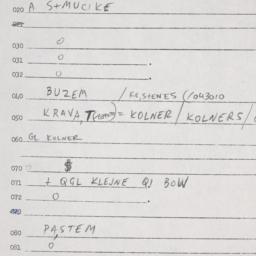 020 A S+MUCIKE
030 0
031 0
032 0
040 BUZEM
050 KRAVA, = KOLNER / KOLNERS /
060 GL KOLNER
070 $
071 + QGL KLEJNE QJ BOW
072 0
080 PASTEM
081 0